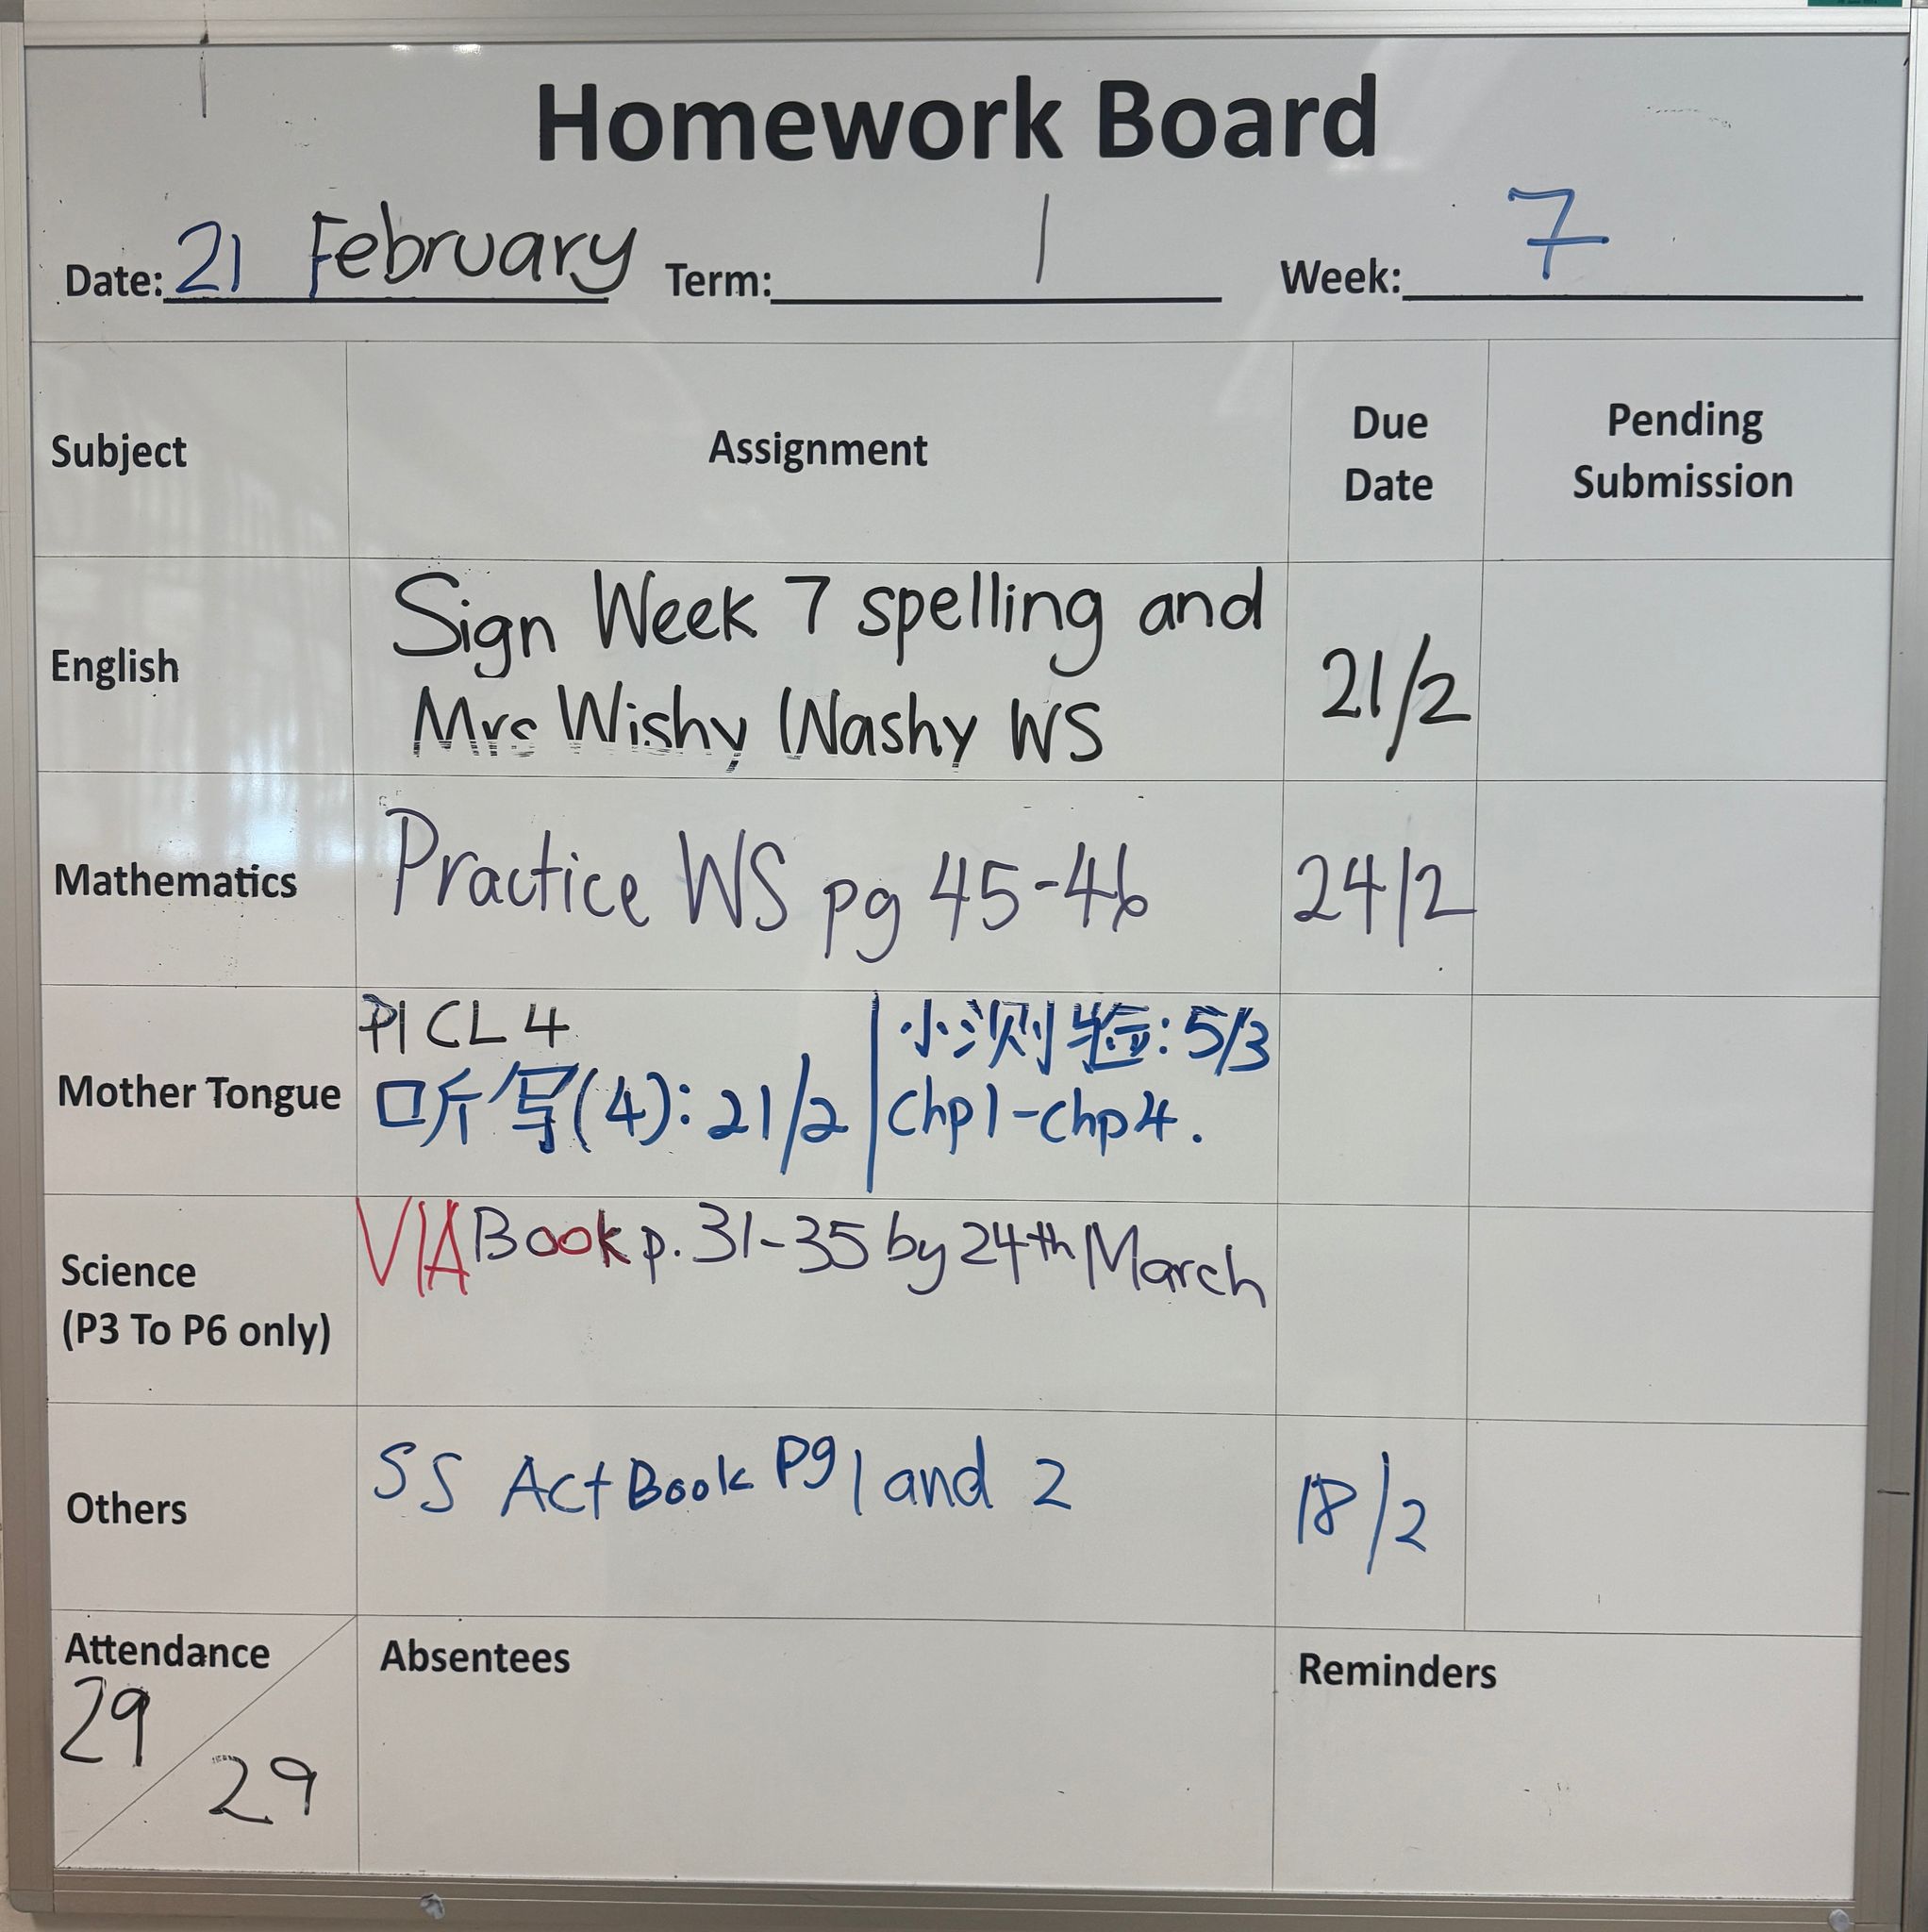 Homework Board
Date: 21 February Term: 1 Week: 7
Subject Assignment Due Date Pending Submission
English
Sign Week 7 spelling and
Mrs Wishy Washy WS
21/2
Mathematics Practice WS pg 45-46 24/2
Mother Tongue
P1 CL 4
听写(4): 21/2
小测验: 5/3
Chp1-Chp4.
Science
(P3 To P6 only)
VIA Book p. 31-35 by 24th March
Others SS Act Book Pg 1 and 2 18/2
Attendance
29
29
Absentees
Reminders